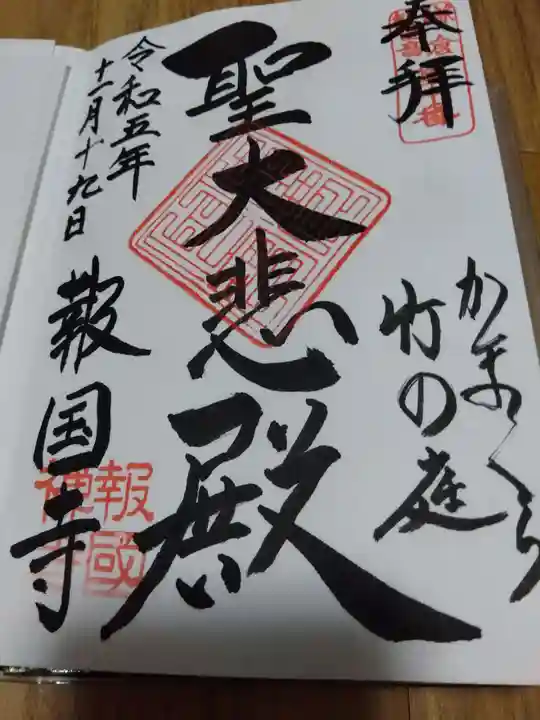 奉拝
かまくら
竹の庭
聖大悲殿
令和五年
十一月十九日
報国寺
報國
禅寺